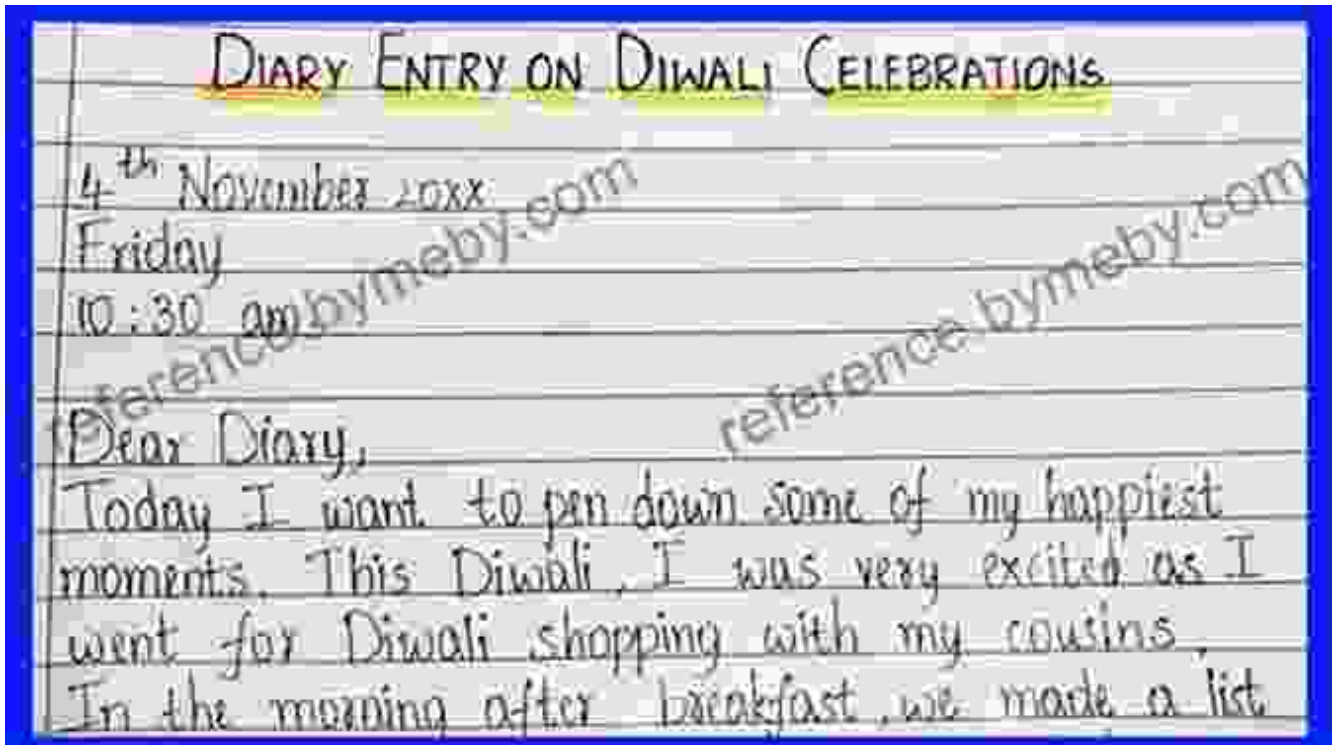 DIARY ENTRY ON DIWALI CELEBRATIONS
4th November 20xx
Friday
10:30 am
reference.bymeby.com
reference.bymeby.com
Dear Diary,
Today I want to pen down some of my happiest
moments. This Diwali, I was very excited as I
went for Diwali shopping with my cousins.
In the morning after breakfast, we made a list